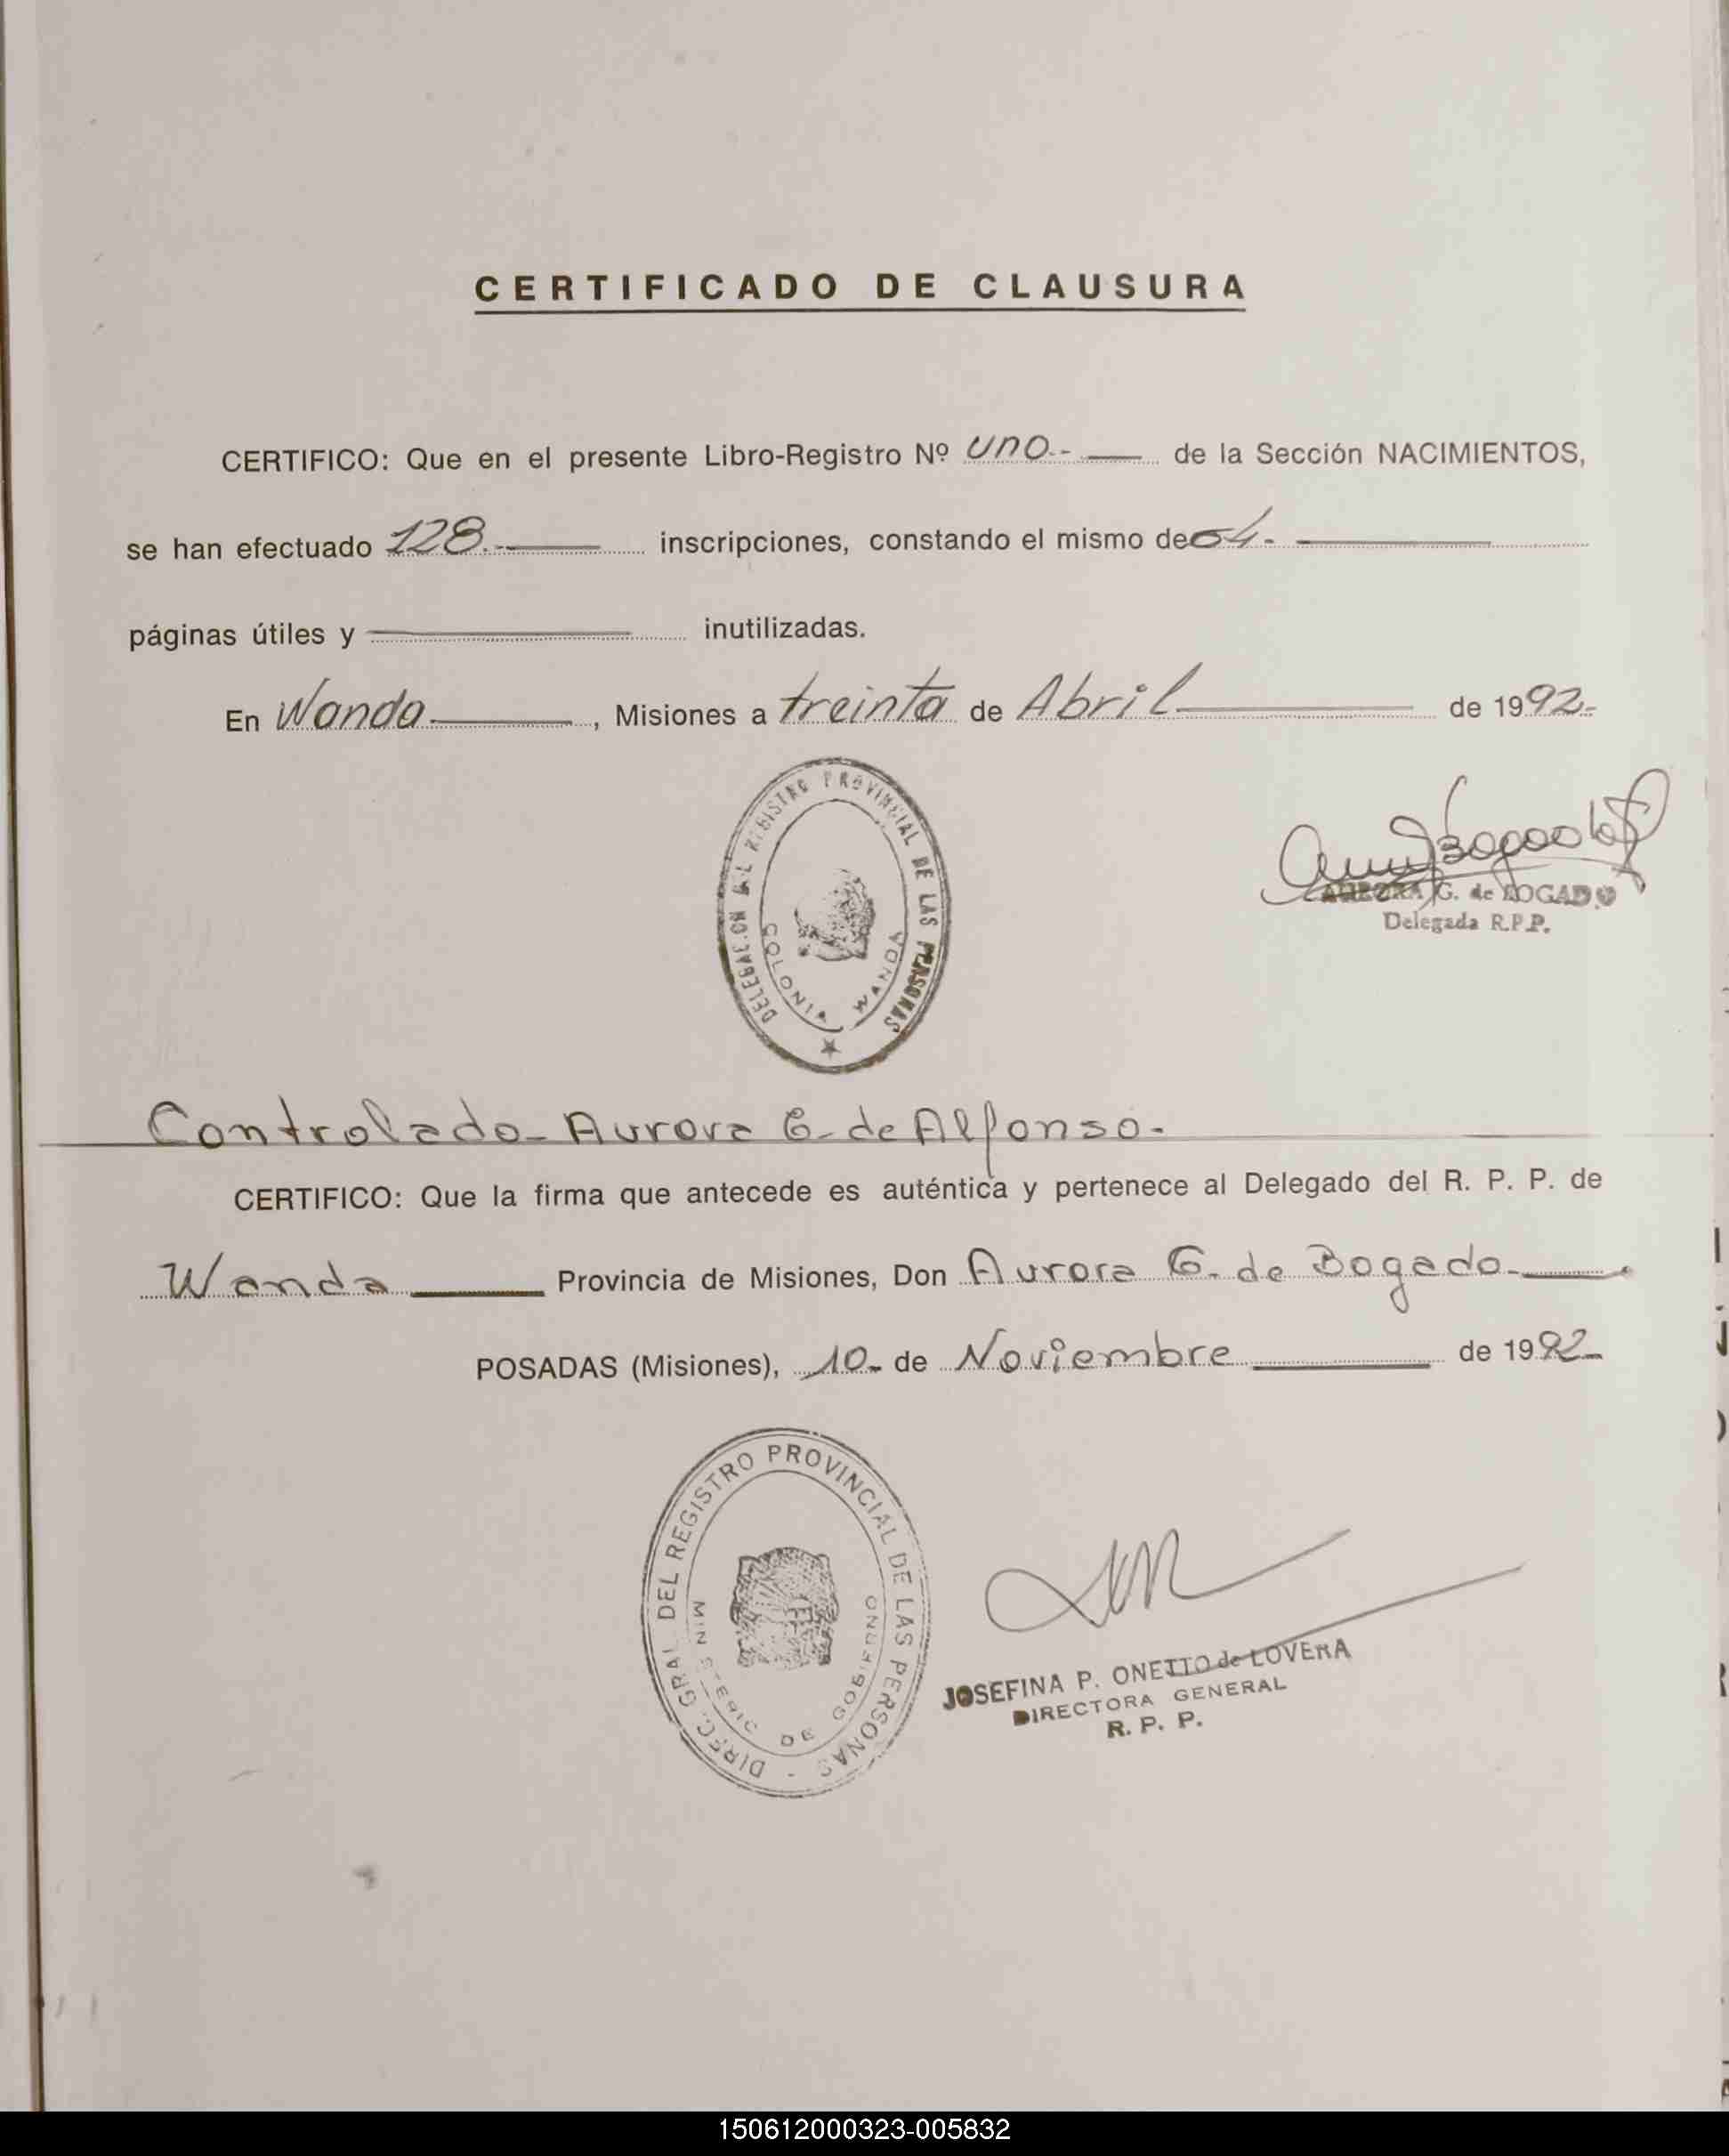 CERTIFICADO DE CLAUSURA
CERTIFICO: Que en el presente Libro-Registro Nº uno.- de la Sección NACIMIENTOS,
se han efectuado 128.- inscripciones, constando el mismo de 64.-
páginas útiles y inutilizadas.
En Wanda , Misiones a treinta de Abril de 1992.-
DELEGACION DEL REGISTRO PROVINCIAL DE LAS PERSONAS
COLONIA WANDA
AURORA G. de BOGADO
Delegada R.P.P.
Controlado - Aurora G. de Alfonso.-
CERTIFICO: Que la firma que antecede es auténtica y pertenece al Delegado del R. P. P. de
Wanda Provincia de Misiones, Don Aurora G. de Bogado.-
POSADAS (Misiones), 10 - de Noviembre de 1992-
DIREC. GRAL DEL REGISTRO PROVINCIAL DE LAS PERSONAS -
MINISTERIO DE GOBIERNO
JOSEFINA P. ONETTO de LOVERA
DIRECTORA GENERAL
R. P. P.
150612000323-005832